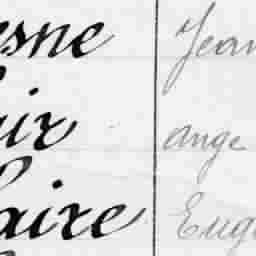 esne Jean
air ange
laire Euge